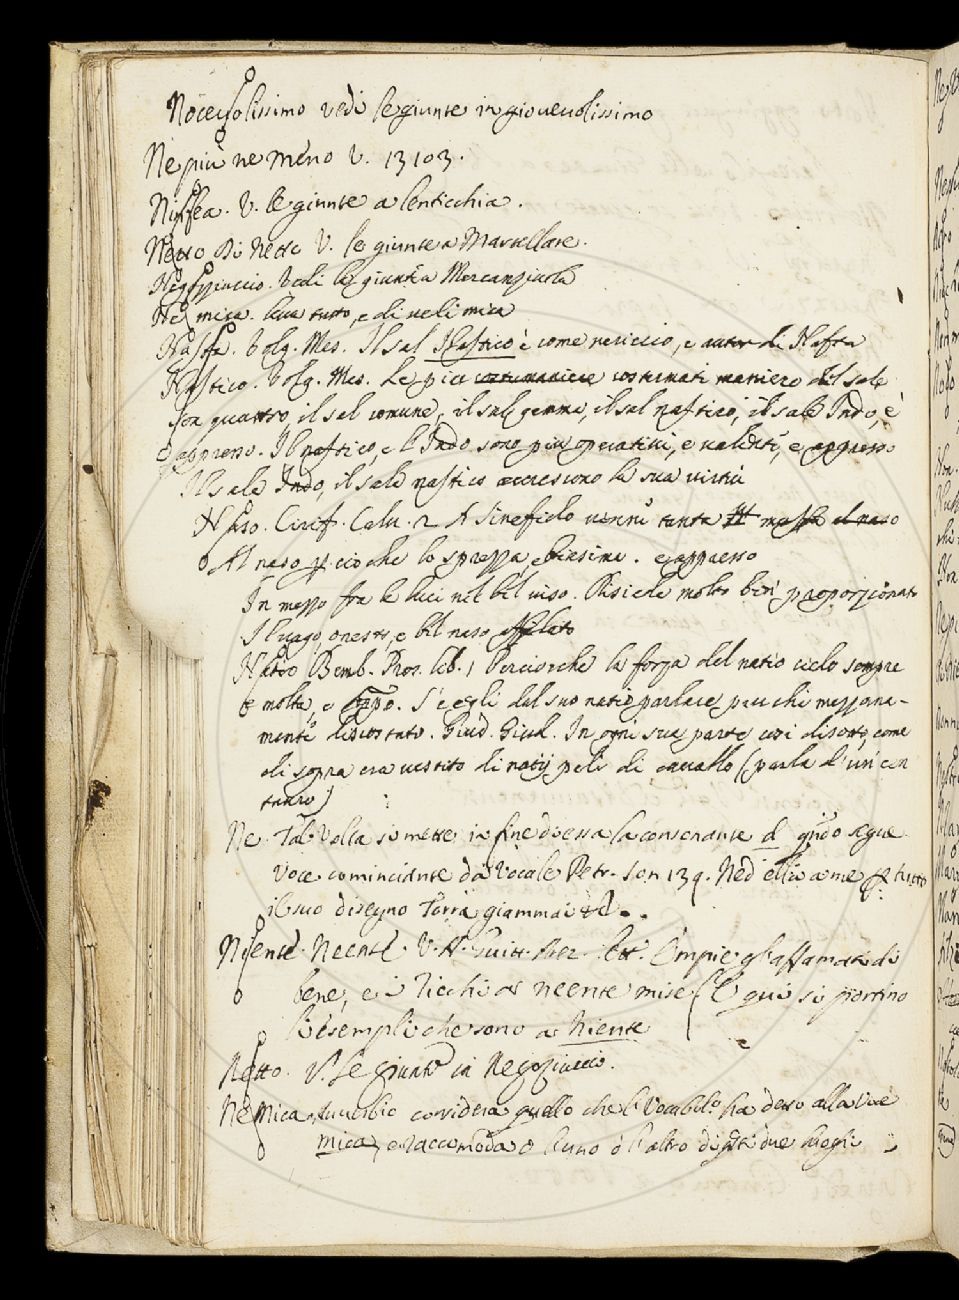 Nocevolissimo vedi le giunte in giovevolissimo
Ne più ne meno V. 13103.
Ninfea. V. le giunte a lenticchia.
Netto Di Netto V. le giunte a Marcellare.
Negoziuccio. Vedi le giunte a Mercanziuola
Ne mica. leva tutto, e di veli mica
Nafta. Volg. Mes. Il sal Naftico è come nericcio, e di Nafta
Naftico. Volg. Mes. Le più costumati maniere del sale
son quattro, il sal comune, il sal gemma, il sal naftico, il sale Indo, è
e appresso. Il naftico, e l'Indo sono più operativi, e validi, e appresso
Il sale Indo, il sale naftico accrescono la sua virtù
Naso. Ciriff. Calv. 2 A Sinefido venne tanta
Al naso p. ciò che lo sprezza, e biasima. e appresso
In mezzo fra le luci nel bel viso. Risiede molto ben proporzionato
Il vago, onesto, e bel naso affilato
Natio Bemb. Pros. lib. 1 Perciocchè la forza del natio cielo sempre
è molta, e dopo. S'è egli dal suo natio parlare più che mezzana-
mente discostato. Guid. Giud. In ogni sua parte così disotto, come
di sopra era vestito di natij peli di cavallo (parla d'un cen
tauro)
Ne. Tal Volta si mette in fine d'essa la consonante d qndo segue
Voce cominciante da Vocale Petr. Son 139. Ned ella a me p tutto
il suo disegno Torrà giammai &c.
Niente. Neente. V. A. Guitt. Arez. Lett. Empie gli affamati di
bene, e i Ricchi a neente mise (E qui si portino
li esempli che sono a Niente
Netto. V. Le Giunte in Negoziuccio.
Ne Mica. Avverbio considera quello che l Vocabol.o ha detto alla Voce
mica, e raccomoda o l'uno o l'altro di qsti due luoghi